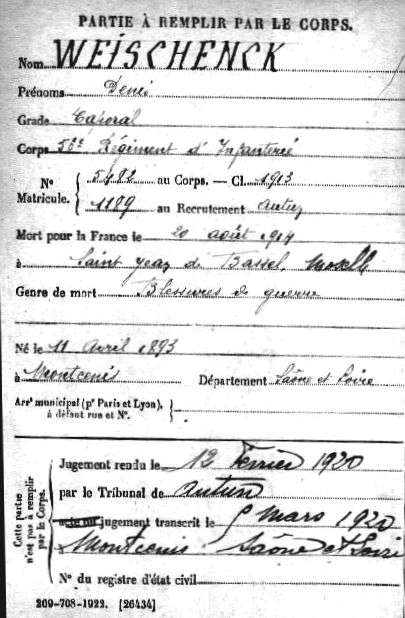 PARTIE À REMPLIR PAR LE CORPS.
Nom WEISCHENCK
Prénoms Denis
Grade Caporal
Corps 56e Régiment d'Infanterie
No Matricule. { 5482 au Corps. — Cl. 1913
1189 au Recrutement Autun
Mort pour la France le 20 août 1914
à Saint Jean de Bassel, Moselle
Genre de mort Blessures de guerre
Né le 11 Avril 1893
à Montcenis Département Saône et Loire
Arrt municipal (pr Paris et Lyon),
à défaut rue et No.
Cette partie n'est pas à remplir par le Corps.
Jugement rendu le 12 Février 1920
par le Tribunal de Autun
acte ou jugement transcrit le 5 Mars 1920
Montcenis Saône et Loire
No du registre d'état civil
269-708-1922. [26434]